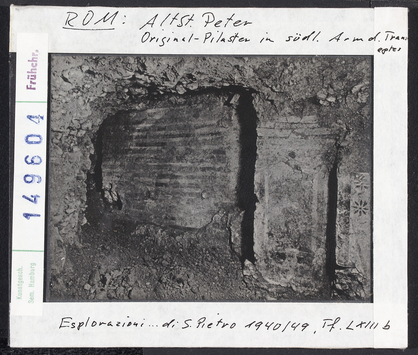 ROM: AltSt. Peter
Original-Pilaster in südl. Arm d. Trans
eptes
Frühchr.
149604
Kunstgesch.
Sem. Hamburg
Esplorazioni... di S. Pietro 1940/49, Tf. LXIII b